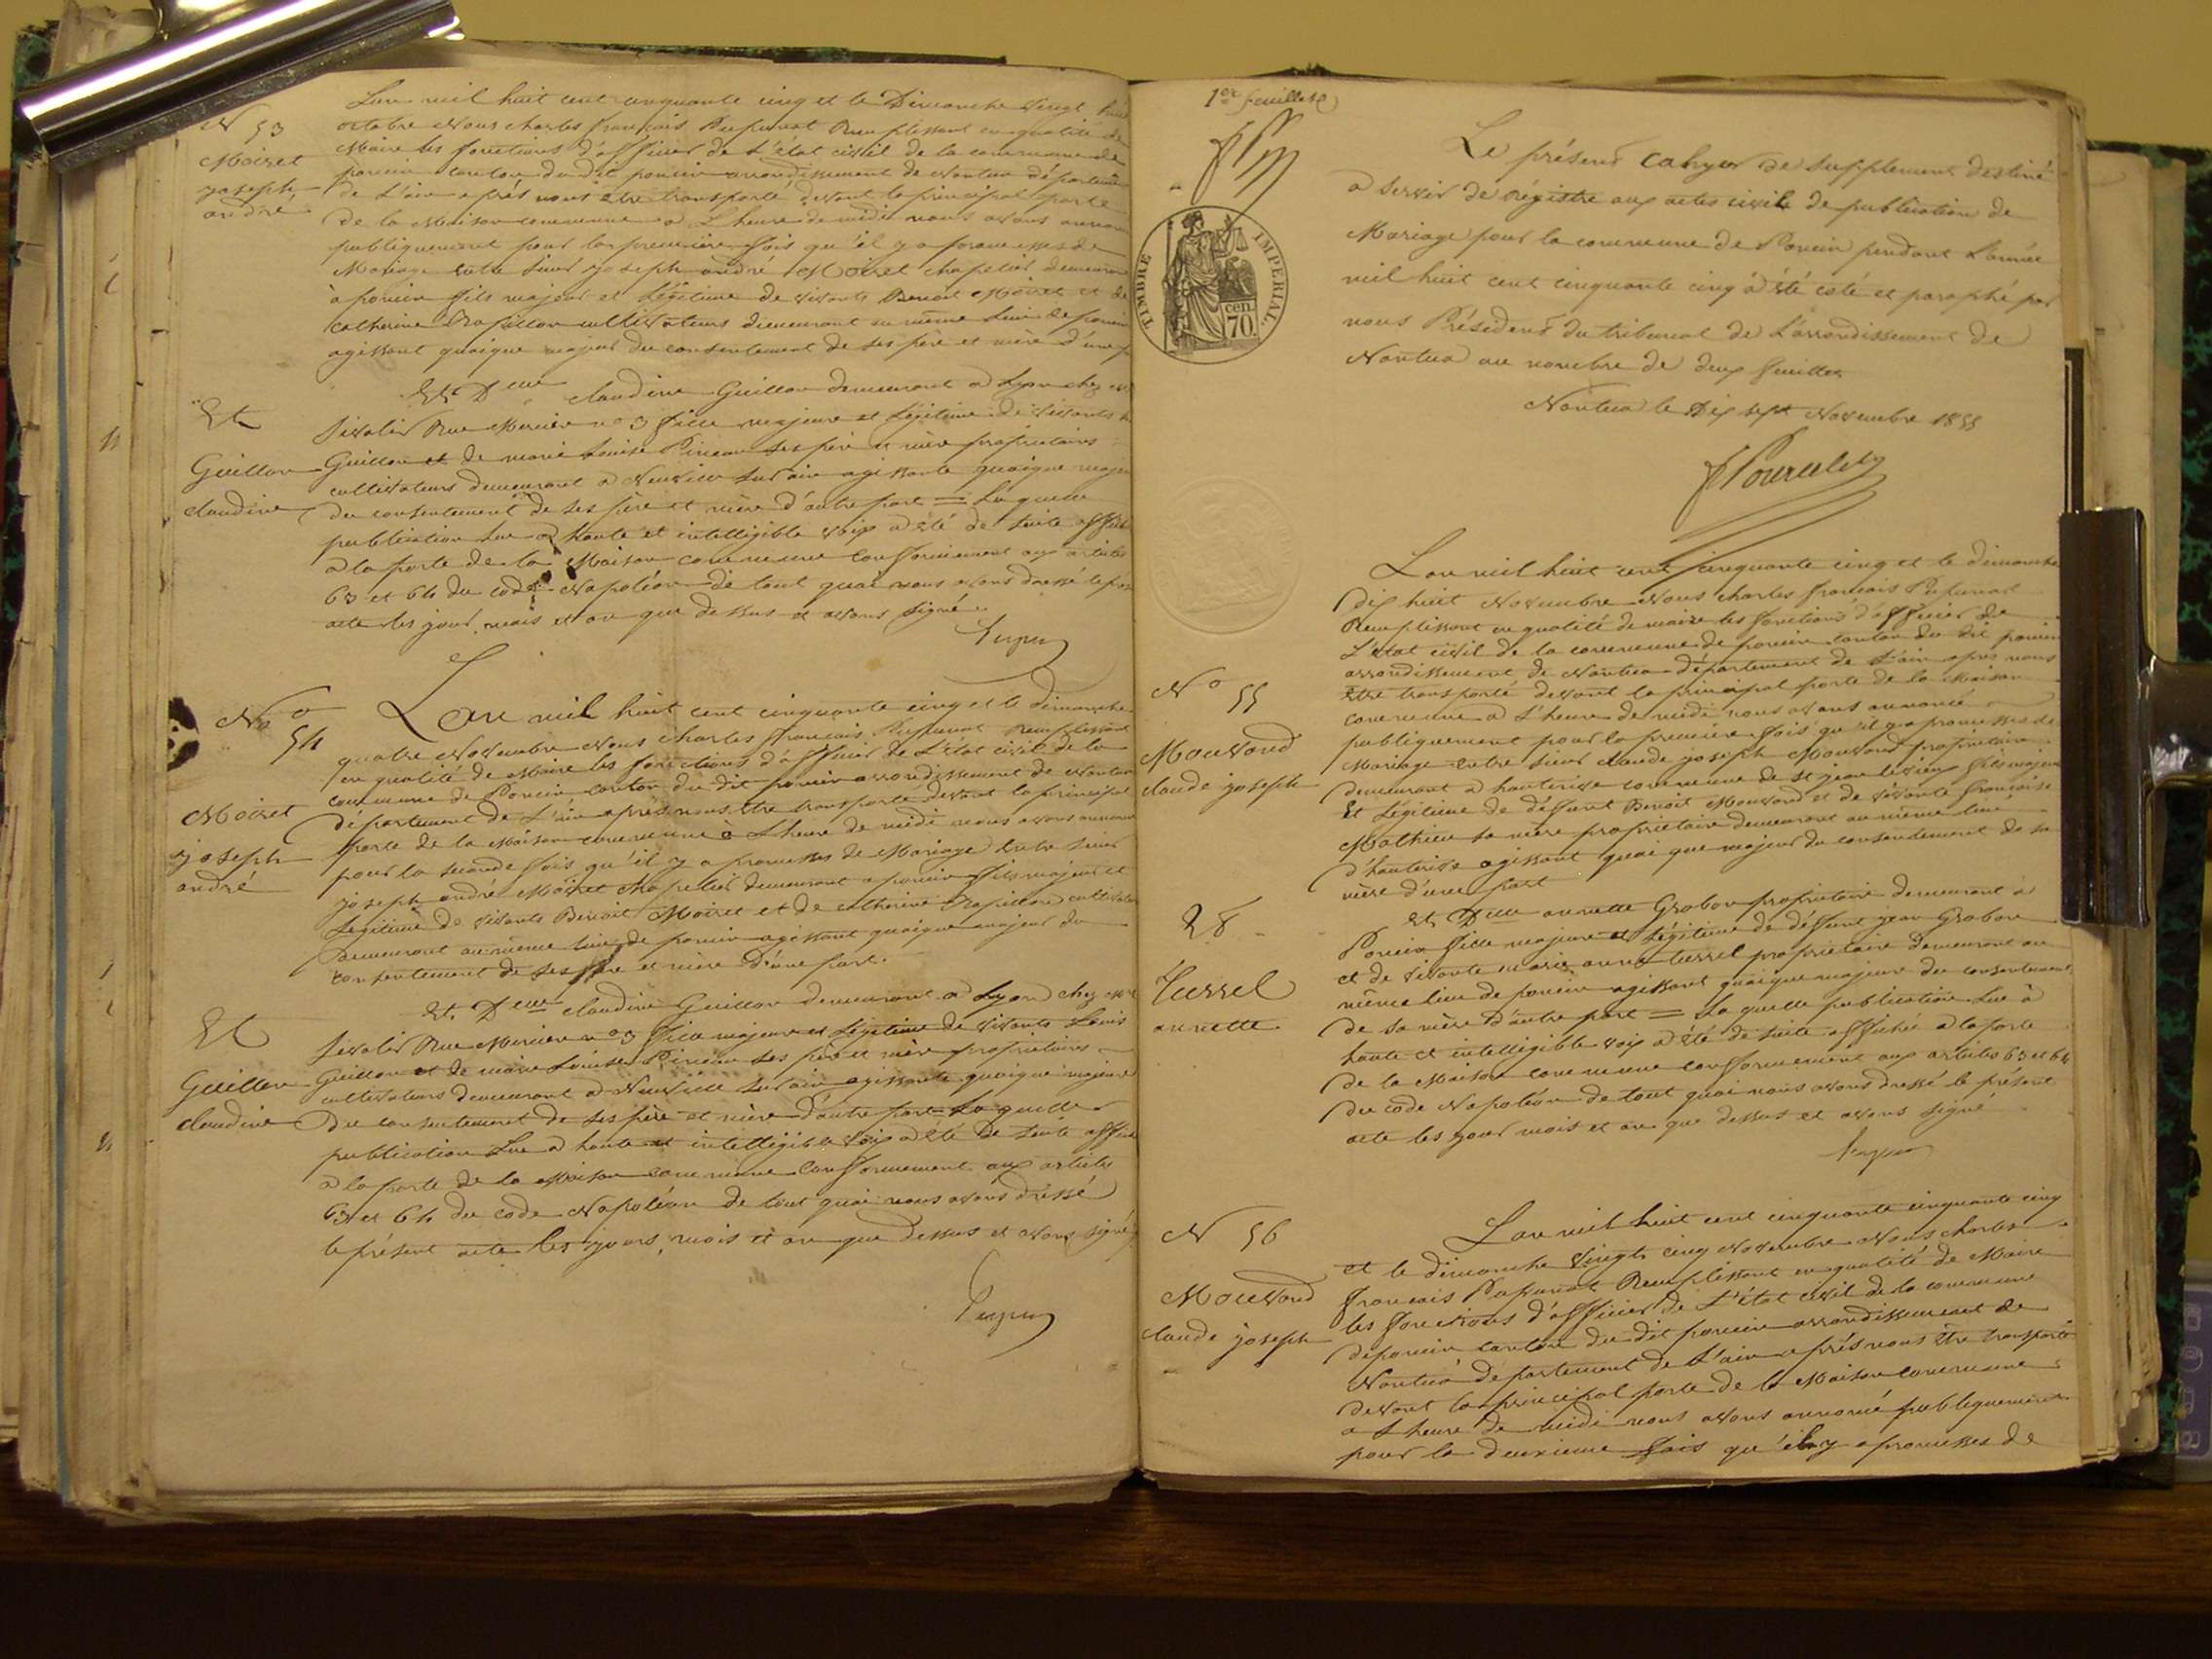 N 53
Moiret
joseph
andré
L'an mil huit cent cinquante cinq et le Dimanche vingt huit
octobre Nous charles français Pupunat Remplissant en qualité de
Maire les fonctions d'officier de L'état civil de la commune de
poncin canton du dit poncin arrondissement de Nantua département
de L'ain après nous être transporté devant la principal porte
de la Maison commune a L'heure de midi nous avons annoncé
publiquement pour la première fois qu'il y a promesses de
Mariage entre Sieur joseph andré Moiret chapelier demeurant
à poncin fils majeur et Légitime de vivants Benoit Moiret et de
catherine Papillon cultivateurs demeurant au même Lieu de poncin
agissant quoique majeur du consentement de ses père et mère d'une p
Et
Guillon
claudine
Et Delle claudine Guillon demeurant a Lyon chez
Rue Mercière no 3 fille majeure et Légitime de vivants
Guillon et de marie Louise Pineau ses père et mère propriétaires
cultivateurs demeurant a Neuville sur ain agissante quoique majeure
du consentement de ses père et mère d'autre part = La quelle
publication Lue a haute et intelligible voix a été de suite affichée
a la porte de la Maison commune conformément aux articles
63 et 64 du code Napoléon de tout quoi nous avons dressé le pré
acte les jour, mois et an que dessus et avons signé.
No 54
Moiret
joseph
andré
L'an mil huit cent cinquante cinq et le dimanche
quatre Novembre Nous charles français Pupunat remplissant
en qualité de Maire les fonctions d'officier de L'état civil de la
commune de Poncin canton du dit poncin arrondissement de Nantua
département de L'ain après nous être transporté devant la principal
porte de la Maison commune à L'heure de midi nous avons annoncé
pour la seconde fois qu'il y a promesses de Mariage Entre Sieur
joseph andré Moiret chapelier demeurant a poncin fils majeur et
Légitime de vivants Benoit Moiret et de catherine Papillon cultivateurs
Demeurant au même Lieu de poncin agissant quoique majeur du
consentement de ses père et mère d'une part.
Et
Guillon
claudine
Et Delle claudine Guillon demeurant a Lyon chez
Rue Mercière no 3 fille majeure et Légitime de vivants Louis
Guillon et de marie Louise Pineau ses père et mère propriétaires
cultivateurs demeurant a Neuville sur ain agissante quoique majeure
Du consentement de ses père et mère d'autre part = La quelle
publication Lue a haute et intelligible voix a été de suite affichée
a la porte de la Maison commune conformément aux articles
63 et 64 du code Napoléon de tout quoi nous avons dressé
le présent acte les jours, mois et an que dessus et avons signé
1er feuillet
TIMBRE IMPERIAL
cen.
70
Le présent cahyer de supplement destiné
a servir de Régistre aux actes civile de publication de
Mariage pour la commune de Poncin pendant L'année
mil huit cent cinquante cinq à été coté et paraphé par
nous Président du tribunal de L'arrondissement de
Nantua au nombre de deux feuillets
Nantua le Dix sept Novembre 1855
No 55
Mouvand
claude joseph
L'an mil huit cent cinquante cinq et le dimanche
dix huit Novembre Nous charles francais Pupunat
Remplissant en qualité de maire les fonctions d'officier de
L'état civil de la commune de poncin canton du dit poncin
arrondissement de Nantua département de L'ain après nous
être transporté devant la principal porte de la Maison
commune a L'heure de midi nous avons annoncé
publiquement pour la première fois qu'il y a promesses de
Mariage entre Sieur claude joseph Mouvand propriétaire
demeurant a hauterive commune de st jean le vieux fils majeur
et Légitime de déffunt Benoit Mouvand et de vivante françoise
Mathieu sa mère propriétaire demeurant au même lieu
d'hauterive agissant quoi que majeur du consentement de sa
mère d'une part
Tussel
annette
Et Delle annette Grobon propriétaire demeurant à
Poncin fille majeure et Légitime de déffunt jean Grobon
et de vivante marie anne tussel propriétaire demeurant au
même lieu de poncin agissant quoique majeure du consentement
de sa mère d'autre part = La quelle publication Lue à
haute et intelligible voix a été de suite affichée a la porte
de la Maison commune conformément aux articles 63 et 64
du code Napoléon de tout quoi nous avons dressé le présent
acte les jour mois et an que dessus et avons signé
N 56
Mouvand
claude joseph
L'an mil huit cent cinquante cinquante cinq
et le dimanche vingt cinq Novembre Nous charles
francais Pupunat Remplissant en qualité de Maire
les fonctions d'officier de L'état civil de la commune
de poncin canton du dit poncin arrondissement de
Nantua département de L'ain après nous être transporté
devant la principal porte de la Maison commune
a L'heure de midi nous avons annoncé publiquement
pour la deuxieme fois qu'il y a promesses de